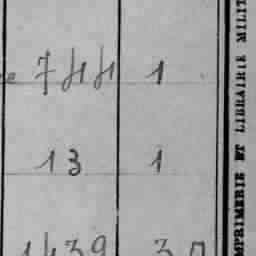 744 1
13 1
1439 30
IMPRIMERIE ET LIBRAIRIE MILIT